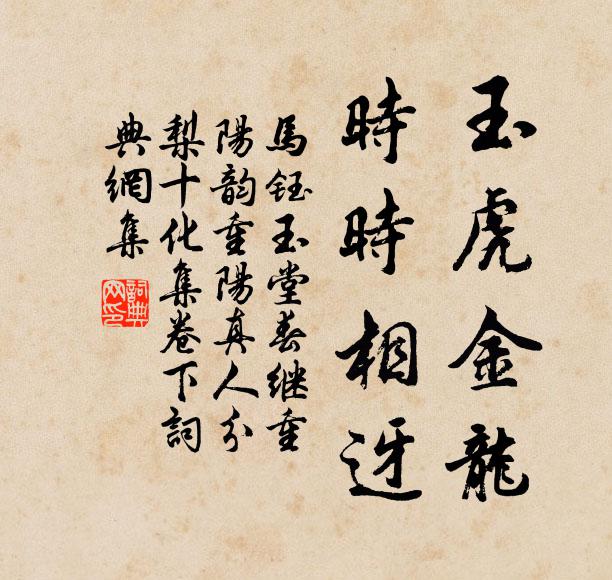 玉虎金龍
時時相迓
馬鈺玉堂春繼重
陽韵重陽真人分
梨十化集卷下詞
典網集
詞典
网印